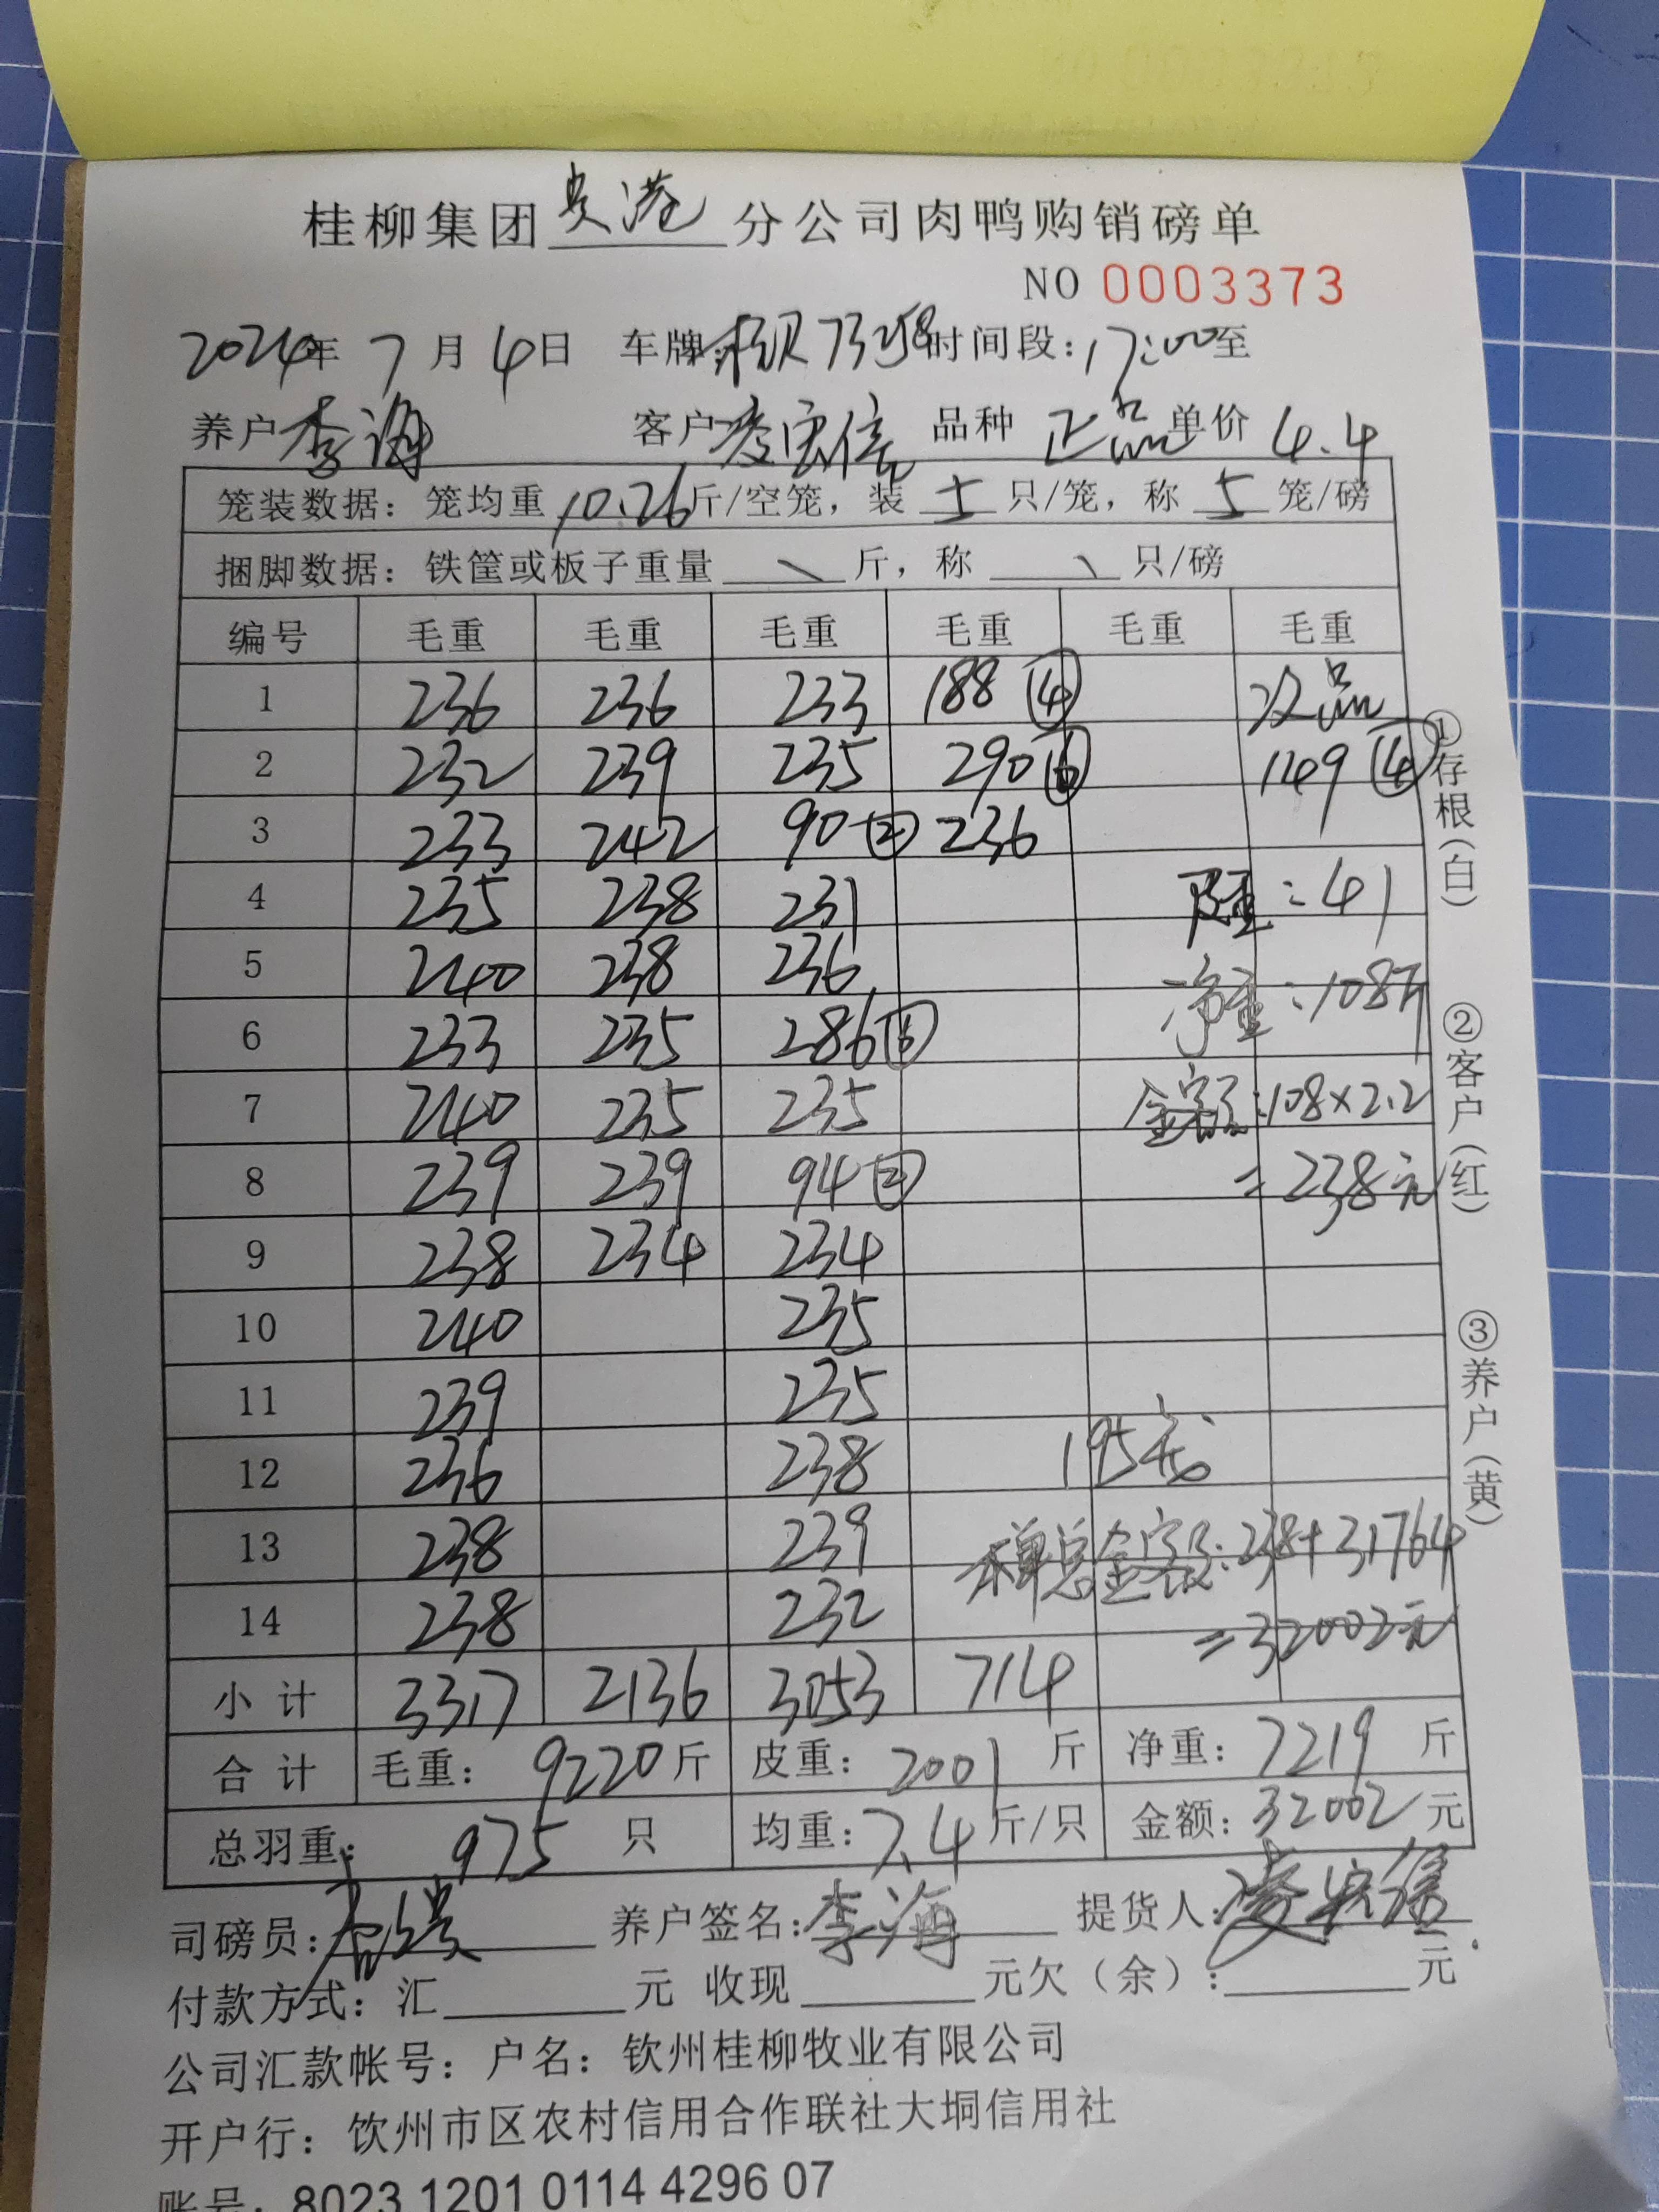 桂柳集团贵港分公司肉鸭购销磅单
NO 0003373
2024年7月4日 车牌: 73258 时间段:17:00至
养户李海 客户凌宏信 品种 正品 单价 4.4
笼装数据: 笼均重10.26斤/空笼, 装 5 只/笼, 称 5 笼/磅
捆脚数据: 铁筐或板子重量 \ 斤, 称 \ 只/磅
编号 毛重 毛重 毛重 毛重 毛重 毛重
1 236 236 233 188④ 次品
2 232 239 235 290⑥ 149④
3 233 242 90② 236
4 235 238 231 皮重:41
5 240 238 236 净重:108斤
6 233 235 286⑥
7 240 235 235 金额:108×2.2
8 239 239 94② =238元
9 238 234 234
10 240 235
11 239 235
12 236 238 195笼
13 238 239 本单总金额:238+31764
14 238 232 =32002元
小计 3317 2136 3053 714
合计 毛重: 9220斤 皮重: 2001斤 净重: 7219斤
总羽重: 975只 均重: 7.4斤/只 金额: 32002元
司磅员: 养户签名:李海 提货人:凌宏信
付款方式: 汇 元 收现 元欠(余): 元
公司汇款帐号: 户名: 钦州桂柳牧业有限公司
开户行: 钦州市区农村信用合作联社大垌信用社
账号: 8023 1201 0114 4296 07
①存根(白)
②客户(红)
③养户(黄)